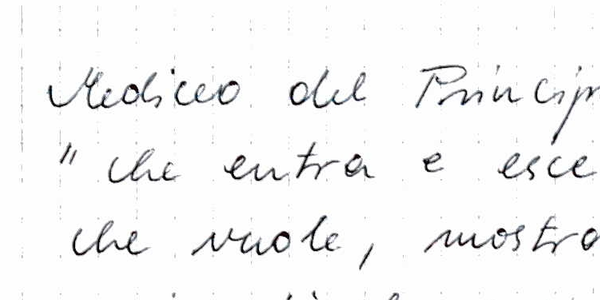 Mediceo del Princip
" che entra e esce
che vuole, mostra